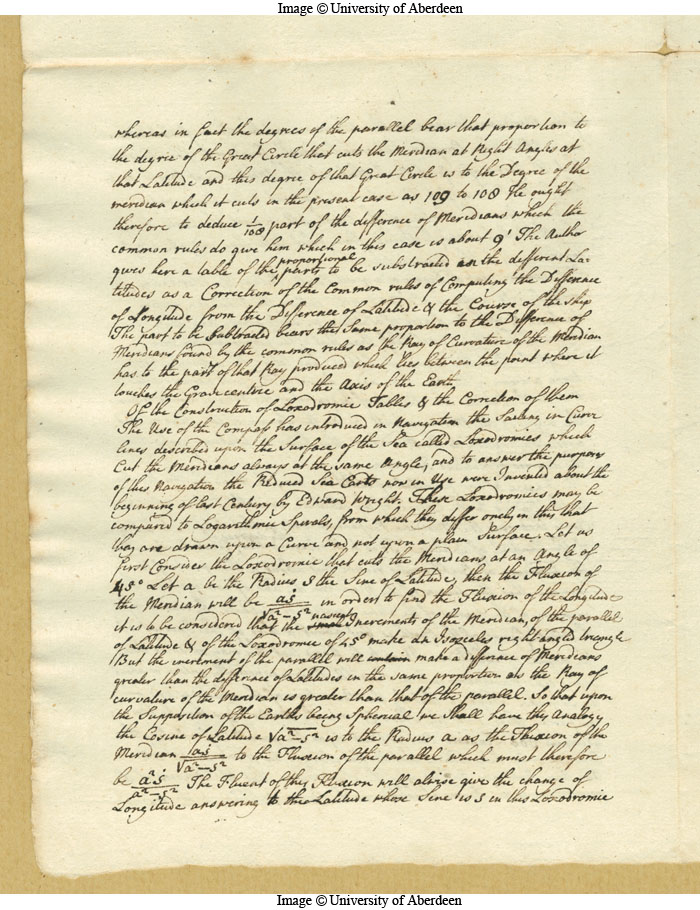 Image © University of Aberdeen
whereas in fact the degrees of the parallel bear that proportion to
the degree of the Great Circle that cuts the Meridian at Right Angles at
that Latitude and this degree of that Great Circle is to the Degree of the
meridian which it cuts in the present case as 109 to 108 He ought
therefore to deduce 1/108 part of the difference of Meridians which the
common rules do give him which in this case is about 9' The Author
gives here a table of the proportional parts to be substracted in the different La-
titudes as a Correction of the Common rules of Computing the Difference
of Longitude from the Difference of Latitude & the Course of the Ship
The part to be Subtracted bears the Same proportion to the Difference of
Meridians found by the common rules as the Ray of Curvature of the Meridian
has to the part of that Ray produced which lies between the point where it
touches the and the Axis of the Earth,
Of the Construction of Loxodromic Tables & the Correction of them
The Use of the Compass has introduced in Navigation the Sailing in Curve
lines described upon the Surface of the Sea called Loxodromics which
Cut the Meridians always at the same Angle, and to answer the purposes
of this Navigation the Reduced Sea Carts now in Use were Invented about the
beginning of last Century by Edward Wright. These Loxodromics may be
compared to Logarithmic Spirals, from which they differ only in this that
they are drawn upon a Curve and not upon a plain Surface. Let us
first Consider the Loxodromic that cuts the Meridians at an Angle of
45° Let a be the Radius s the Sine of Latitude, then the Fluxion of
the Meridian will be aṡ/√a²-s² in order to find the Fluxion of the Longitude
it is to be considered that the nascent Increments of the Meridian, of the parallel
of Latitude & of the Loxodromic of 45° make an Isosceles right angled triangle
But the increment of the parallel will make a difference of Meridians
greater than the difference of Latitudes in the same proportion as the Ray of
curvature of the Meridian is greater than that of the parallel. So that upon
the Supposition of the Earths being Spherical we Shall have this Analogy
the Cosine of Latitude √a²-s² is to the Radius a as the Fluxion of the
Meridian aṡ/√a²-s² to the Fluxion of the parallel which must therefore
be a²ṡ/a²-s² The Fluent of this Fluxion will give the change of
Longitude answering to the Latitude whose Sine is s in this Loxodromic
Image © University of Aberdeen